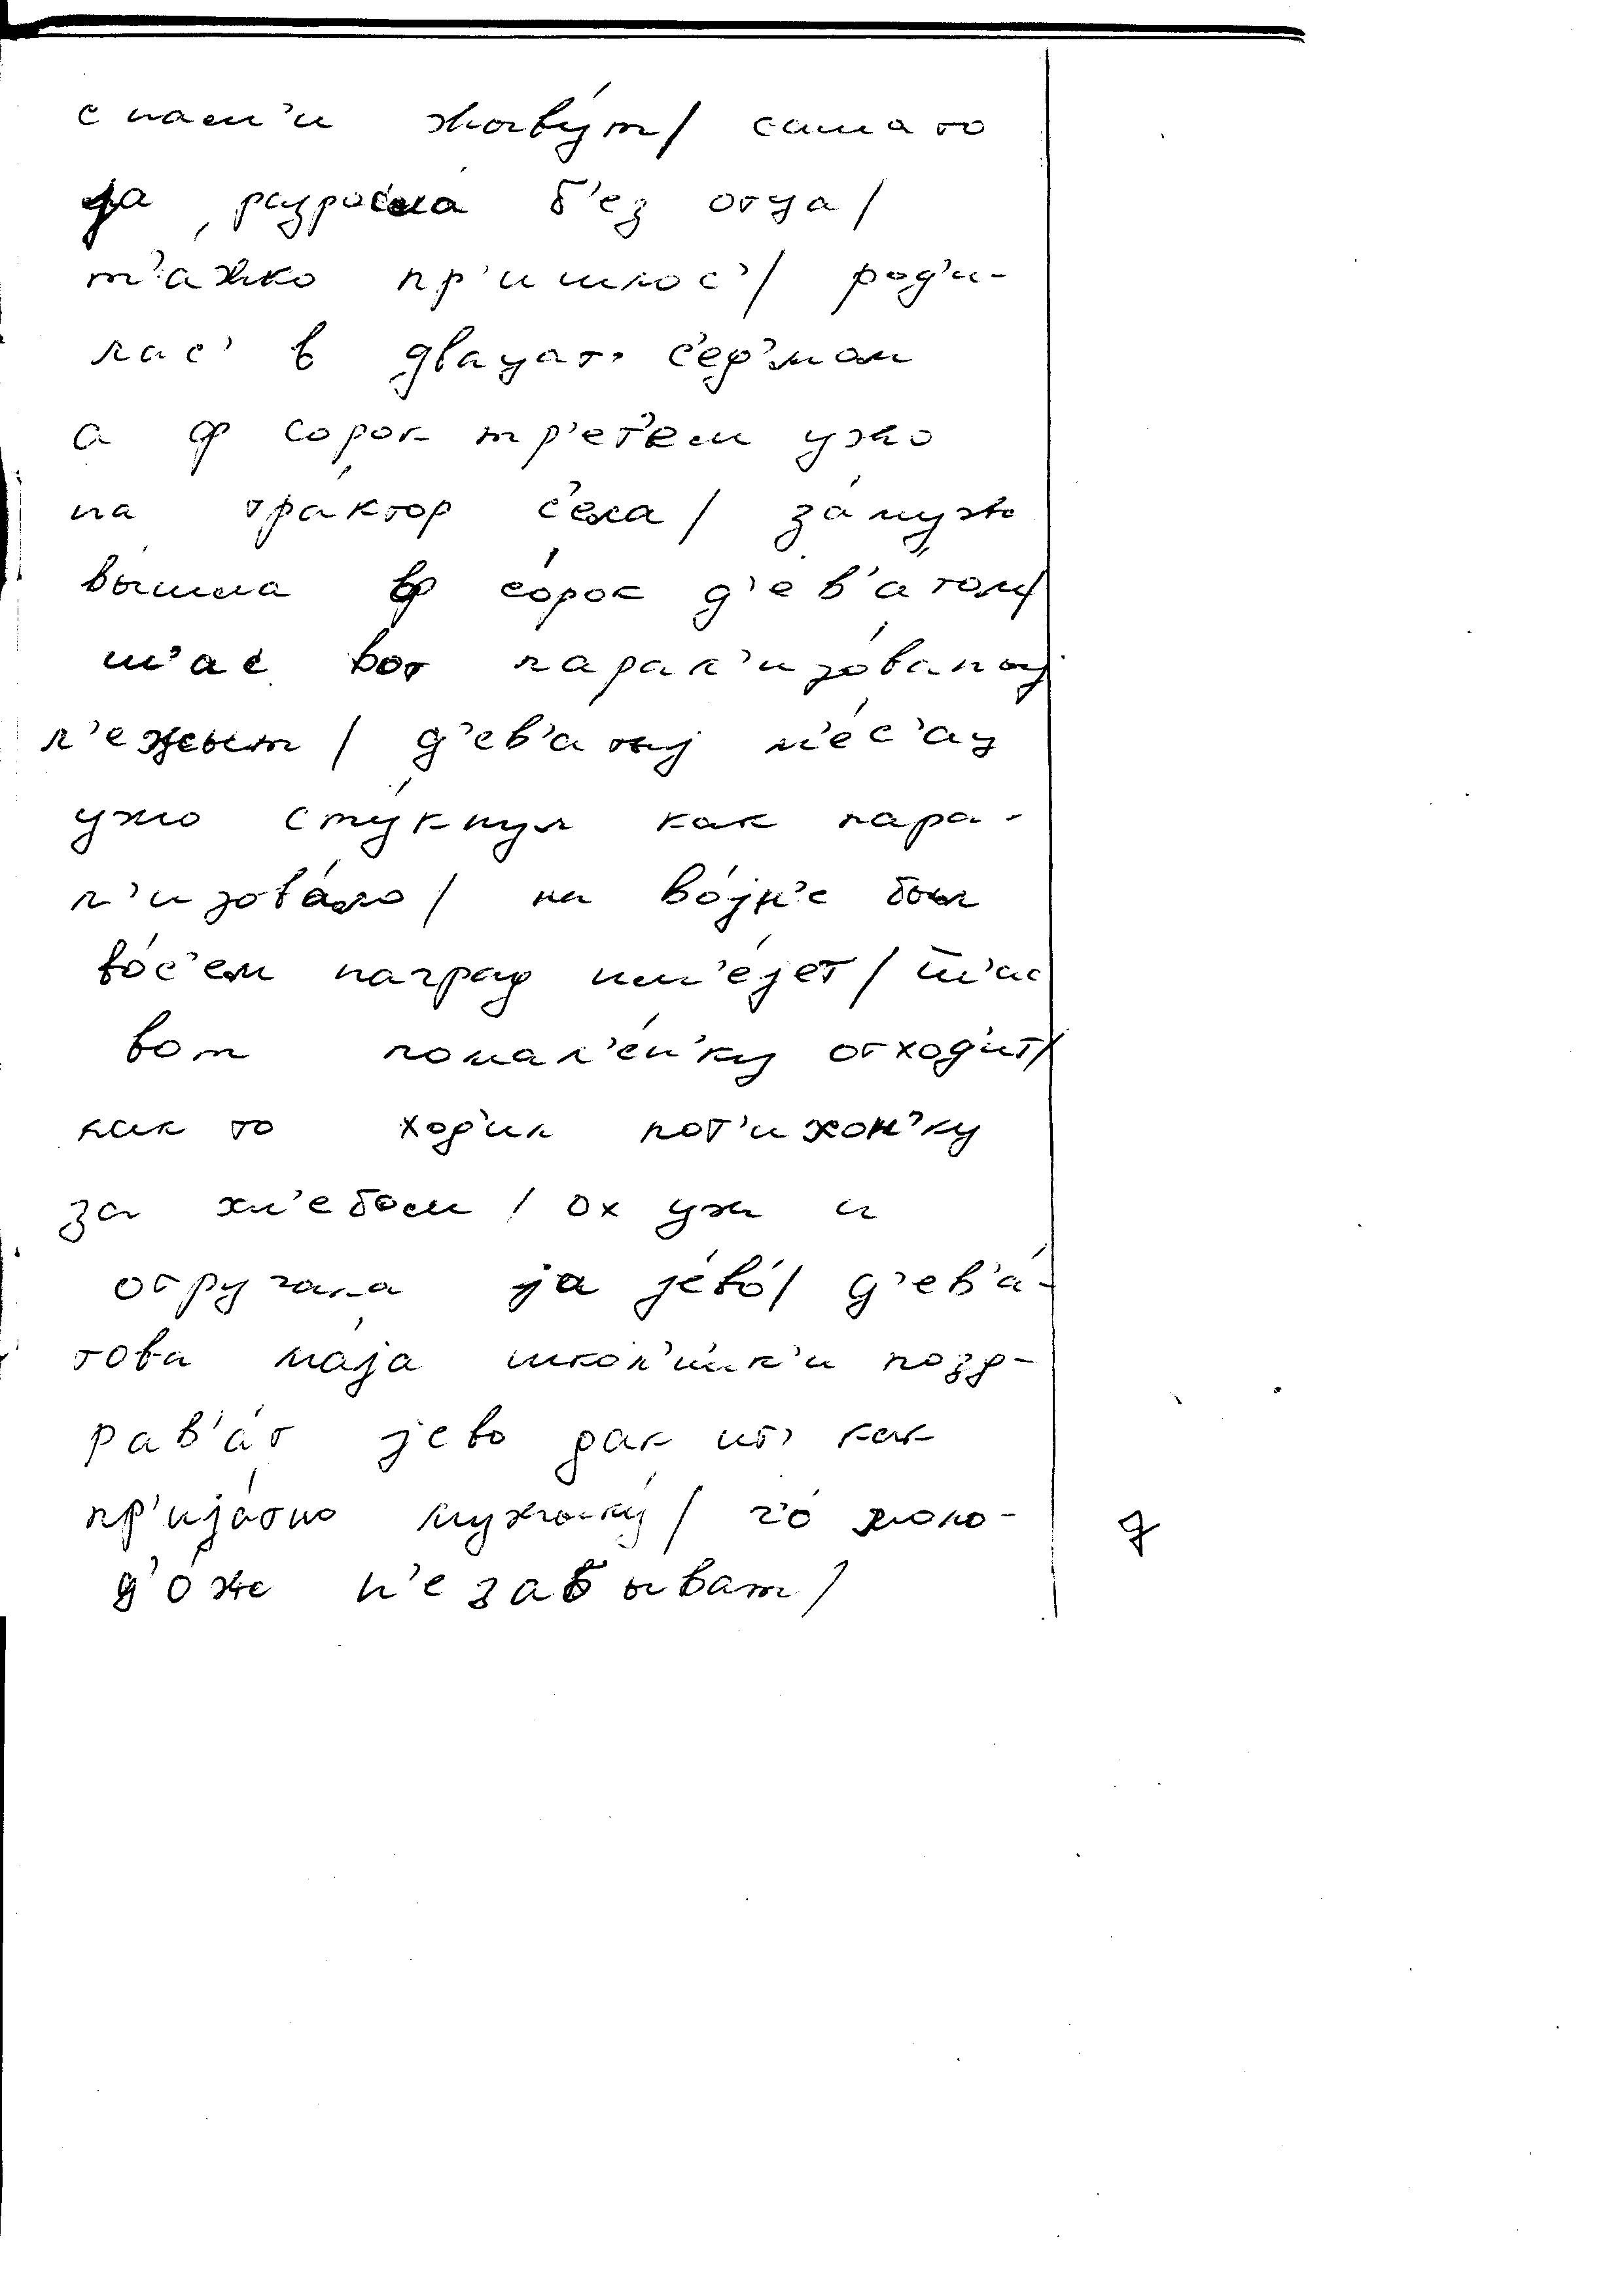 с нам'и жывýт/ сама то
ja разросла́ б'ез отца/
т'ажко пр'ишлос'/ род'и-
лас' в двацат' с'ед'мом
а ф сорок тр'ет'ем ужо
на тра́ктор с'ела/ за́муж
вы́шла ф со́рок д'ев'а́том/
ш'ас вот парал'изо́ваныj
л'ежыт/ д'ев'атыj м'е́с'ац
ужо сту́кнул как пара-
л'изова́ло/ на во́jн'е был
во́с'ем наград им'е́jет/ ш'ас
вот помал'е́н'ку отход'ит/
как то ход'ил пот'ихон'ку
за хл'ебом/ ох уж и
отругала ja jево́/ д'ев'а́-
това маjа школ'н'ик'и позд-
рав'а́т jево дак ит' как
пр'иjа́тно мужыку́/ ч'о́ моло-
д'о́ж н'е забыват/